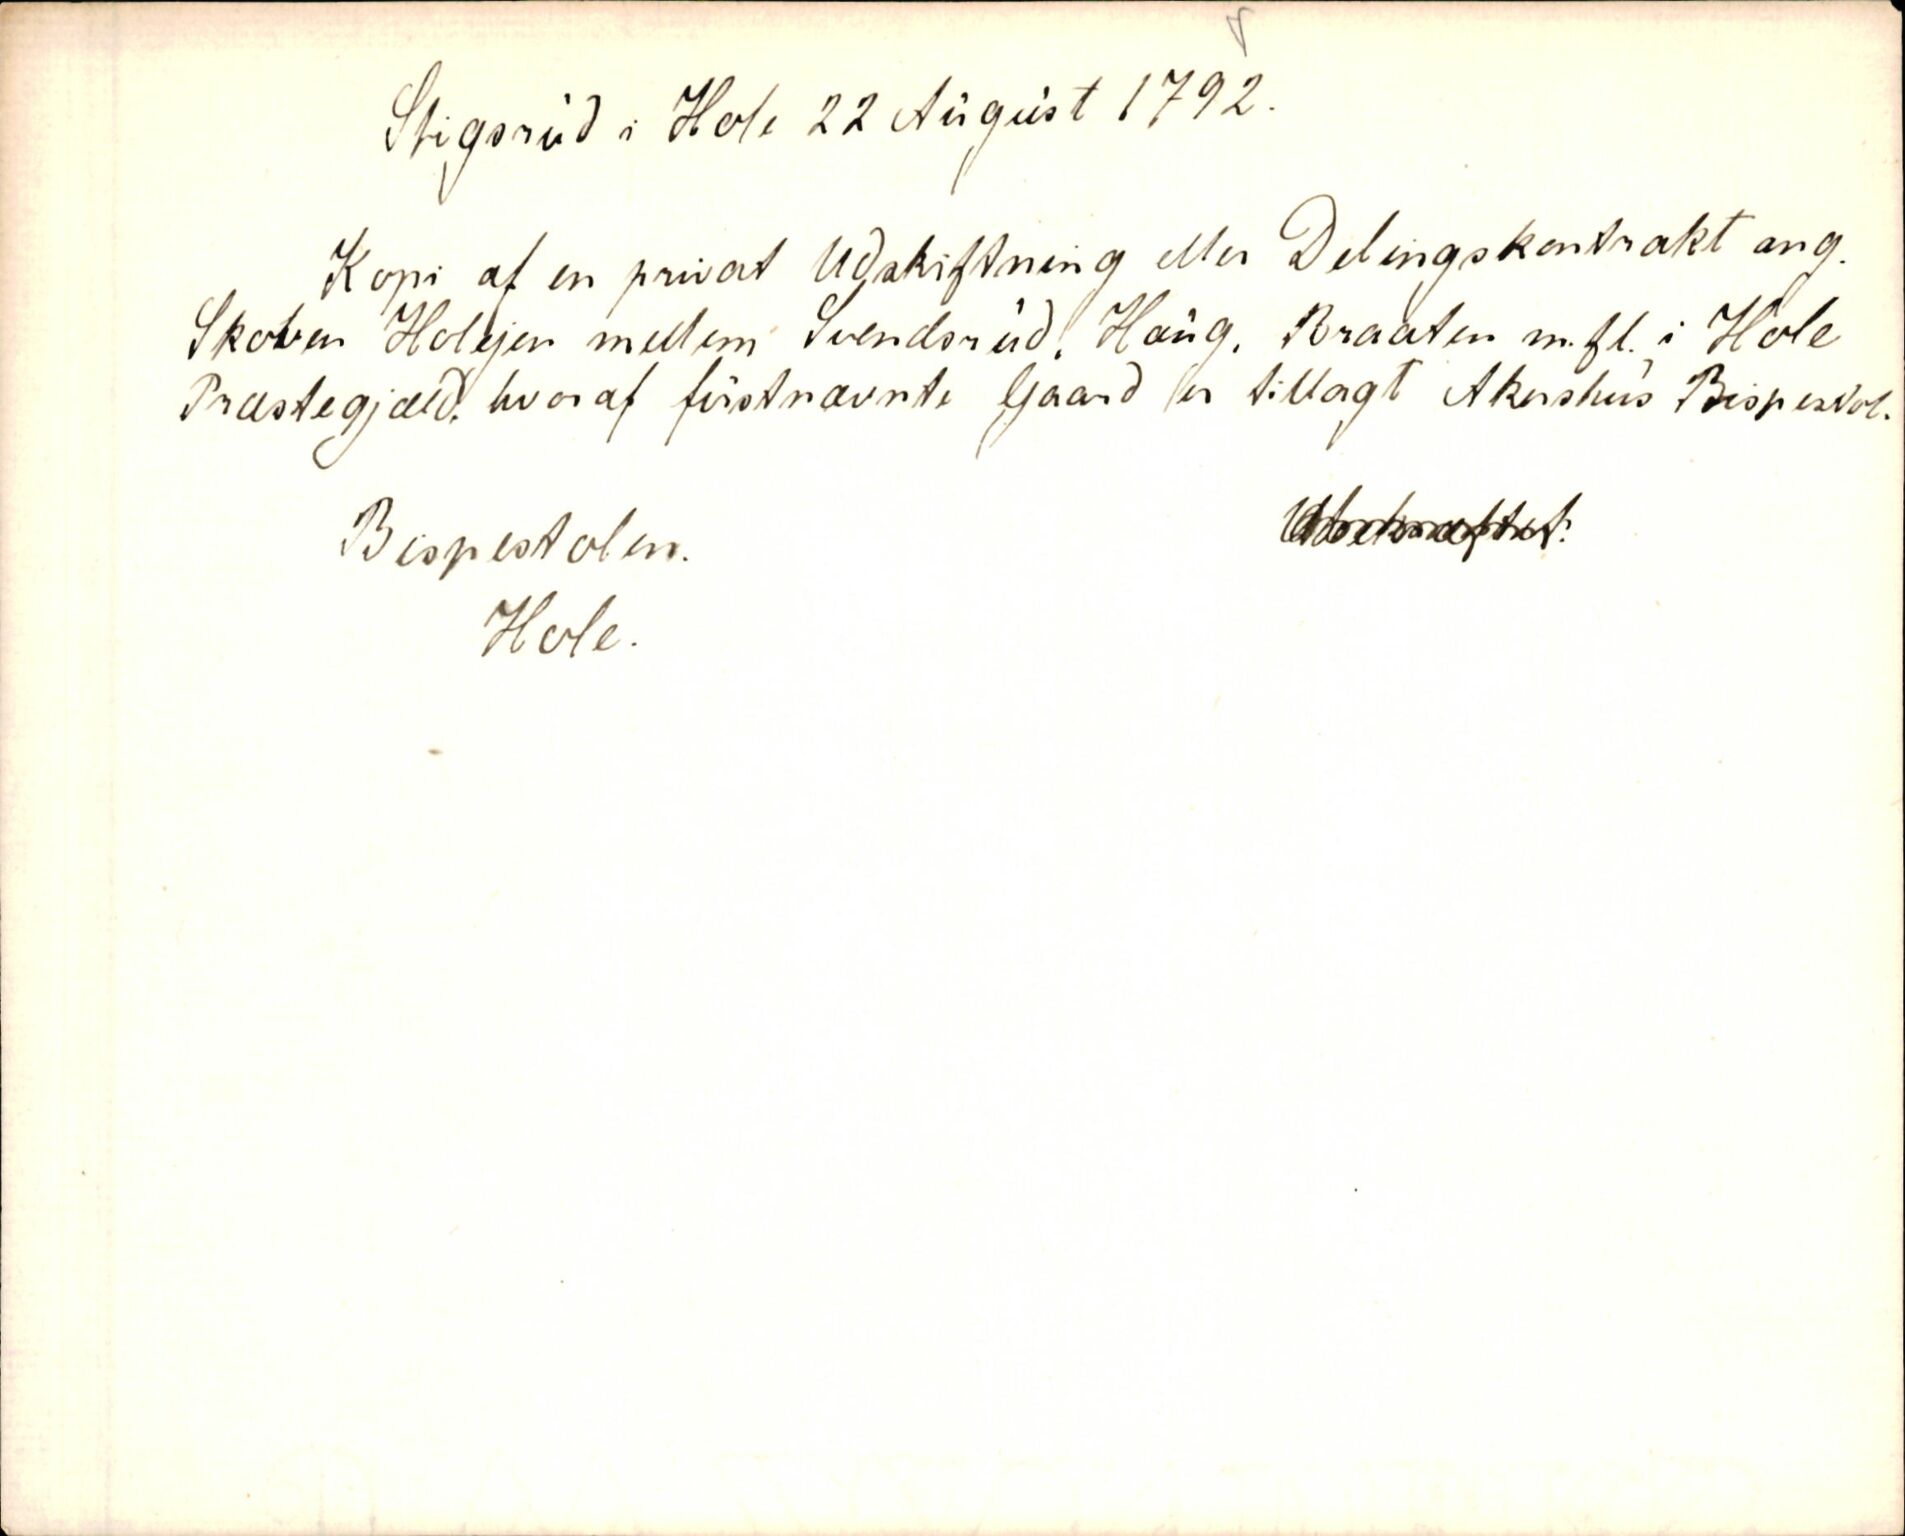 Stigsrud i Hole 22 August 1792.
Kopi af en privat Udskiftning eller Delingskontrakt ang.
Skoven Holejen mellem Svendsrud, Haug, Braaten m.fl. i Hole
Præstegjæld, hvoraf førstnævnte Gaard er tillagt Akershus Bispestol.
Bispestolen.
Hole.